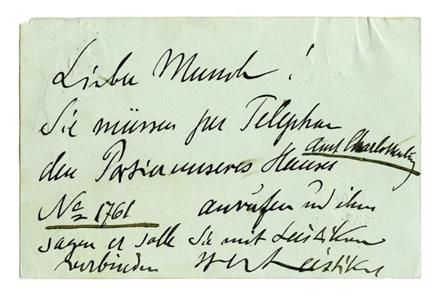 Lieber Munch!
Sie müssen per Telephon
Amt Charlottenbg
den Portier unseres Hauses
No 1761 anrufen und ihm
sagen er solle Sie mit Leistikow
verbinden Leistikow